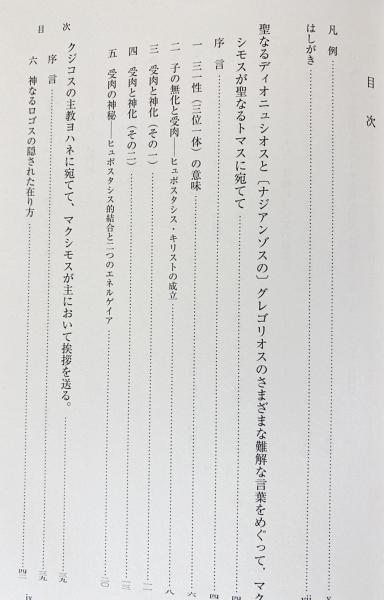 目次
凡例 v
はしがき vii
聖なるディオニュシオスと〔ナジアンゾスの〕グレゴリオスのさまざまな難解な言葉をめぐって、マク
シモスが聖なるトマスに宛てて 四
序言 四
一 三一性（三位一体）の意味 六
二 子の無化と受肉──ヒュポスタシス・キリストの成立 八
三 受肉と神化（その一） 一一
四 受肉と神化（その二） 一三
五 受肉の神秘──ヒュポスタシス的結合と二つのエネルゲイア 二〇
クジコスの主教ヨハネに宛てて、マクシモスが主において挨拶を送る。 三九
序言 三九
六 神なるロゴスの隠された在り方 四二
目次
ix